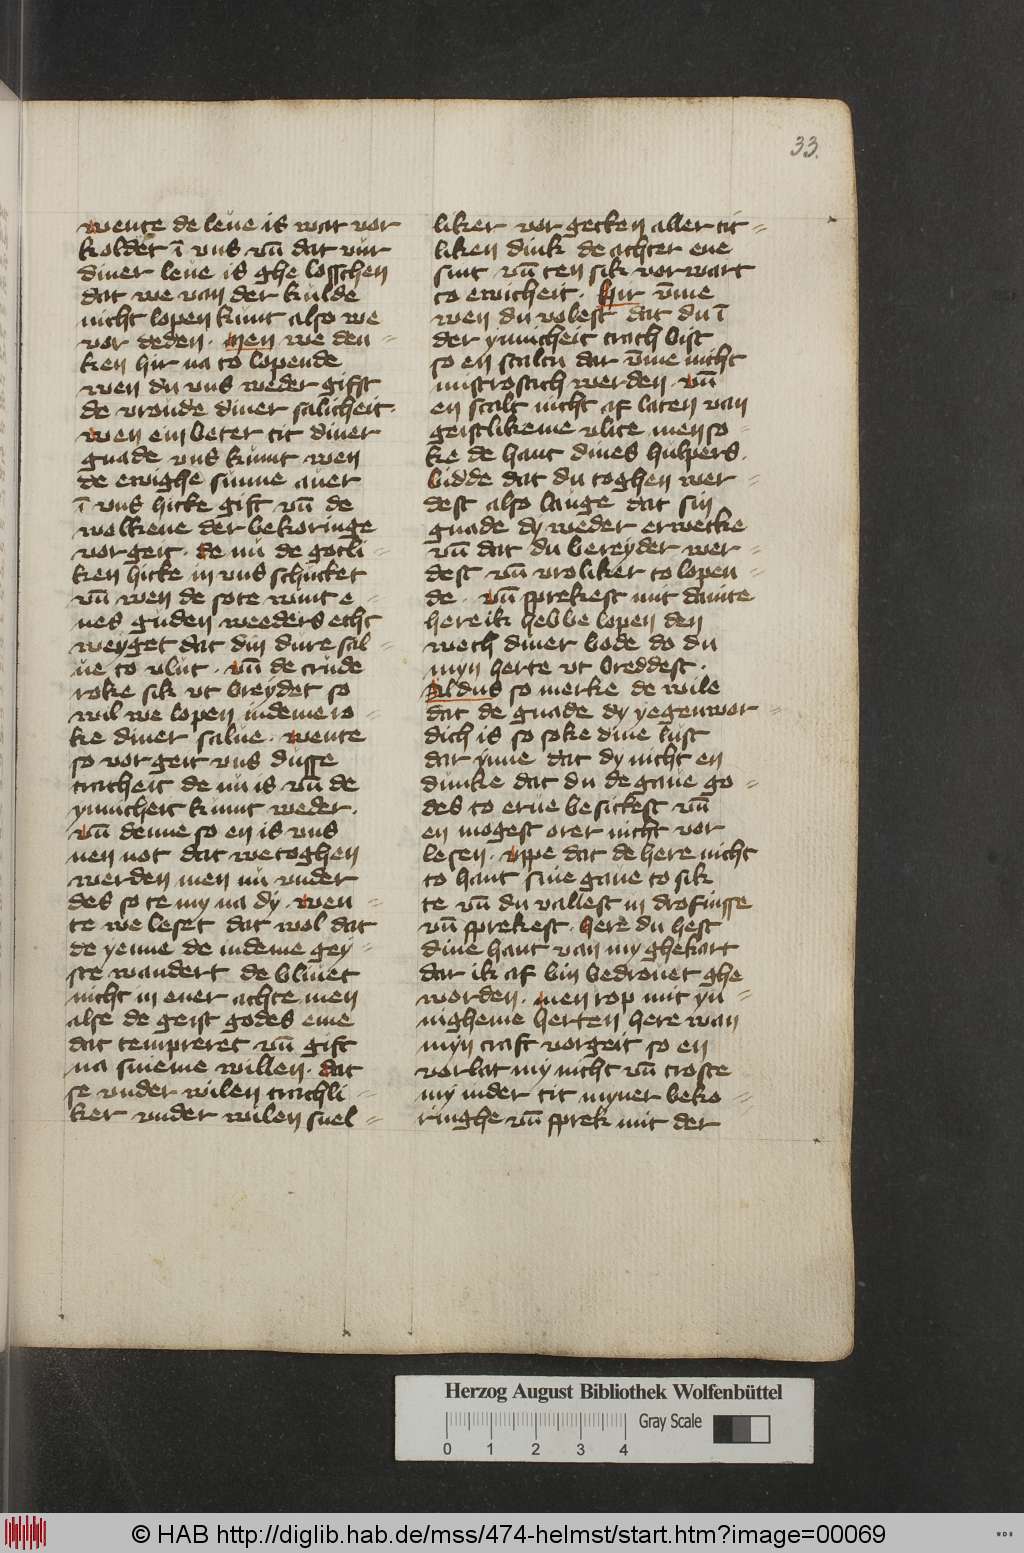 33.
wente de leue is wat vor
koldet ī vns vn̄ dat vur
diner leue is ghe losschen
dat we van der kulde
nicht lopen kunt also we
vor deden . men we den=
ken hir na to lopende
wen du vns weder gifst
de vroude diner salicheit.
wen ein beter tit diner
gnade vns kumt wen
de ewighe sunne auer
ī vns hicke gift vn̄ de
wolkene der bekoringe
vorgeit . de nu de gotli=
ken hicke in vns schucket
vn̄ wen de sote wint e=
nes guden weeders echt
weyget dat din dure sal=
ue to vlut . vn̄ de crude
roke sik vt breydet so
wil we lopen indeme ro=
ke diner salue . wente
so vorgeit vns dusse
tracheit de nu is vn̄ de
ynnicheit kumt weder .
vn̄ denne so en is vns
nen not dat we toghen
werden men nu vnder
des so te my na dy . wen=
te we leset dat wol dat
de yenne de indeme gey=
ste wandert de bliuet
nicht in ener achte men
alse de geist godes eme
dat tempreret vn̄ gift
na sineme willen . dat
se vnder wilen trachli=
ker vnder wilen snel=
liker vor gecken aller tit=
liken dink de achter ene
sint vn̄ ten sik vorwart
to ewicheit . Hir v̄me
wen du volest dat du ī
der ynnicheit trach bist
so en scaltu dar v̄me nicht
mistrostich werden . vn̄
en scalt nicht af laten van
geistlikeme vlite men so=
ke de hant dines hulpers .
bidde dat du toghen wer=
dest also lange dat sin
gnade dy weder erwecke
vn̄ dat du bereyder wer=
dest vn̄ vroliker to lopen=
de . vn̄ sprekest mit dauite
here ik hebbe lopen den
wech diner bode do du
myn herte vt breddest .
Aldus so merke de wile
dat de gnade dy yegenwor=
dich is so soke dine lust
dar ynne dat dy nicht en
dunke dat du de gaue go=
des to erue besickest vn̄
en mogest orer nicht vor
lesen . vppe dat de here nicht
to hant sine gaue to sik
te vn̄ du vallest in drofnisse
vn̄ sprekest . here du hest
dine hant van my ghekart
dar ik af bin bedrouet ghe
worden . men rop mit yn=
nigheme herten here wan
myn craft vorgeit so en
vorlat my nicht vn̄ troste
my inder tit myner beko=
ringhe vn̄ sprek mit der
Herzog August Bibliothek Wolfenbüttel
Gray Scale
0 1 2 3 4
© HAB http://diglib.hab.de/mss/474-helmst/start.htm?image=00069